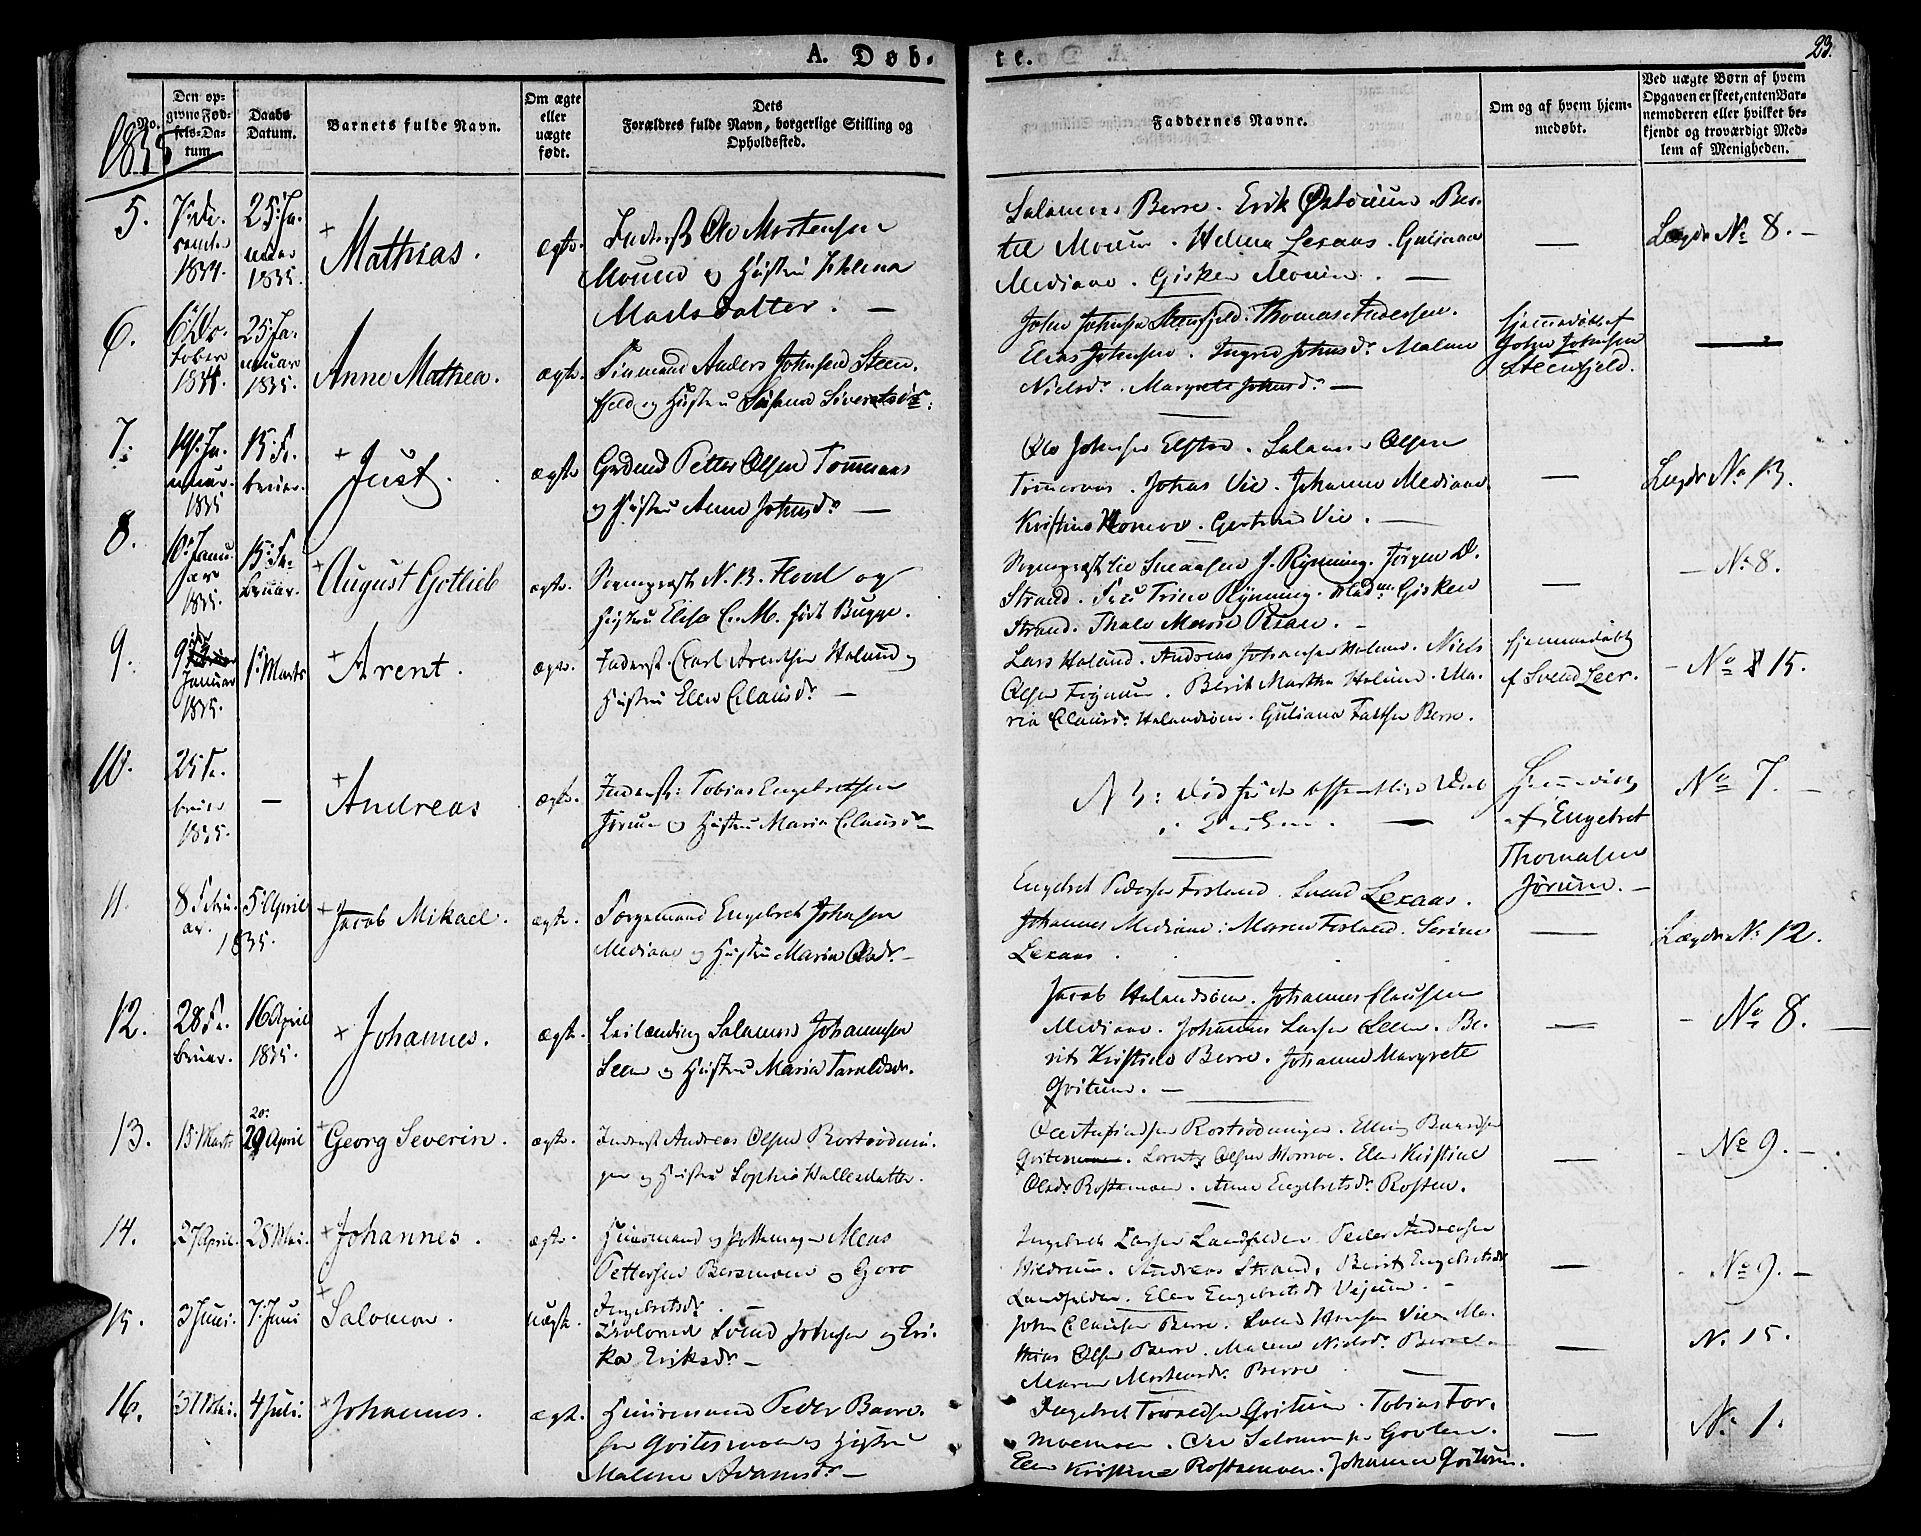 A. Døb-
te.
23.
1835
No.
Den op-
givne Fød-
sels-Da-
tum
Daabs
Datum.
Barnets fulde Navn.
Om ægte
eller
uægte
født.
Dets
Forældres fulde Navn, borgerlige Stilling og
Opholdssted.
Faddernes Navne.
Om og af hvem hjem-
medøbt.
Ved uægte Børn af hvem
Opgaven er skeet, enten Bar-
nemoderen eller hvilket be-
kjendt og troværdigt Med-
lem af Menigheden.
5.
1834.
25 Ja-
nuar
1835.
+ Mathias.
ægte.
Inderst Ole Mortensen
Moum og Hustru Helena
Madsdatter. —
Salamon Berre. Erik Østerium. Ber-
til Moum. Helena Lexaas. Guliana
Mediaae. Gisken Moum. —
—
Lægds No 8. —
6.
6 Oc-
tober
1834.
25 Ja-
nuar
1835.
Anne Mathea.
ægte.
Anders Johnsen Steen-
fjeld og Hustru Susana Sivertsdr.
John Johnsen Steenfjeld. Thomas Andersen.
Elias Johnsen. Ingrid Johnsdr. Malene
Nielsdr. Margrete Johnsdr. —
hjemmedøbt af
John Johnsen
Steenfjeld.
—
7.
19 Ja-
nuar.
1835
15 Fe-
bruar.
+ Just.
ægte
Grdmd Petter Olsen Tømmeraas
og Hustru Anne Johnsdr. —
Ole Johnsen Elstad. Salamon Olsen
Tømmeraas. Johan Vie. Johanna Mediaae.
Kristina Homoe. Gertrud Vie. —
—
Lægds No 13.
8.
6 Janu-
ar
1835.
15 Fe-
bruar.
+ August Gotlieb
ægte.
Sogneprest N. B. Flood og
Hustru Elisa C. M. født Bugge.
Sogneprest til Snaasen J. Rynning. Jørgen D.
Strand. Fru Trine Rynning. Mad. Gisken
Strand. Thale Marie Rian. —
—
— No 8.
9.
9
Januar
1835.
1 Marts
+ Arent.
ægte.
Inderst Carl Arentsen Haland og
Hustru Elen Clausdr. —
Lars Haland. Andreas Johansen Halum. Niels
Olsen Fossum. Berit Martha Halum. Ma-
ria Clausdr. Halandsøen. Guliana Berre.
hjemmedøbt
af Svend Leer.
— No 15.
10.
25 Fe-
bruar
1835.
—
+ Andreas
ægte.
Inderst: Tobias Engebretsen
Jørum og Hustru Maria Clausdr. —
NB: død før den offentlige Daab
i Kirken. —
Hjemmedøbt
af Engebret
Thomasen
Jørum. —
No 7. —
11.
8 Febru-
ar.
1835.
5 April
+ Jacob Mikael.
ægte.
Engebret Johnsen
Mediaae og Hustru Maria Olsdr. —
Engebret Pedersen Fosland. Svend Lexaas.
Johannes Mediaae. Maren Fosland. Serine
Lexaas.
—
Lægds No 12.
12.
28 Fe-
bruar.
16 April
1835.
+ Johannes.
ægte.
Leilænding Salamon Johannesen
Leer og Hustru Maria Taraldsdr.
Jacob Halandsøen. Johannes Clausen
Mediaae. Johannes Larsen Leer. Be-
rit Kirstine Berre. Johanna Margrete
Gvitum. —
—
— No 8. —
13.
15 Marts
20:
29 April
+ Georg Severin.
ægte.
Inderst Andreas Olsen Rostrødnin-
gen og Hustru Sophia Hallesdatter.
Ole Rostrødningen. Elling Baardsen
Gvitemoen. Lorentz Olsen Homoe. Elen Kirstine
Olsdr. Rostemoen. Anne Engebretsdr. Rosten.
—
— No 9. —
14.
27 April.
28 Mai.
+ Johannes.
ægte.
Huusmand og Mons
Pettersen Bersmoen og Goro
Ingebretsdr.
Ingebret Larsen Landfalden. Peder Andersen
Hildrum. Andreas Strand. Berit Engebretsdr.
Landfalden. Elen Engebretsdr. Vejum. —
—
— No 9. —
15.
3 Juni.
7 Juni
+ Salomon.
uægte.
Svend Johnsen og Eri-
ka Eriksdr. —
John Clausen Berre. Svend Hansen Vie. Ma-
thias Olsen Berre. Malene Nielsdr. Berre.
Maren Mortensdr. Berre. —
—
No 15.
16.
31 Mai.
4 Juli.
+ Johannes.
ægte.
Huusmand Peder Baare-
sen Gvitesmoen og Hustru
Malene Adamsdr. —
Ingebret Gvitum. Tobias For-
moemoen. Ole Salomonsen Govlen.
Elen Kirstine Rostemoen. Johanna Gvitum.
—
No 1.